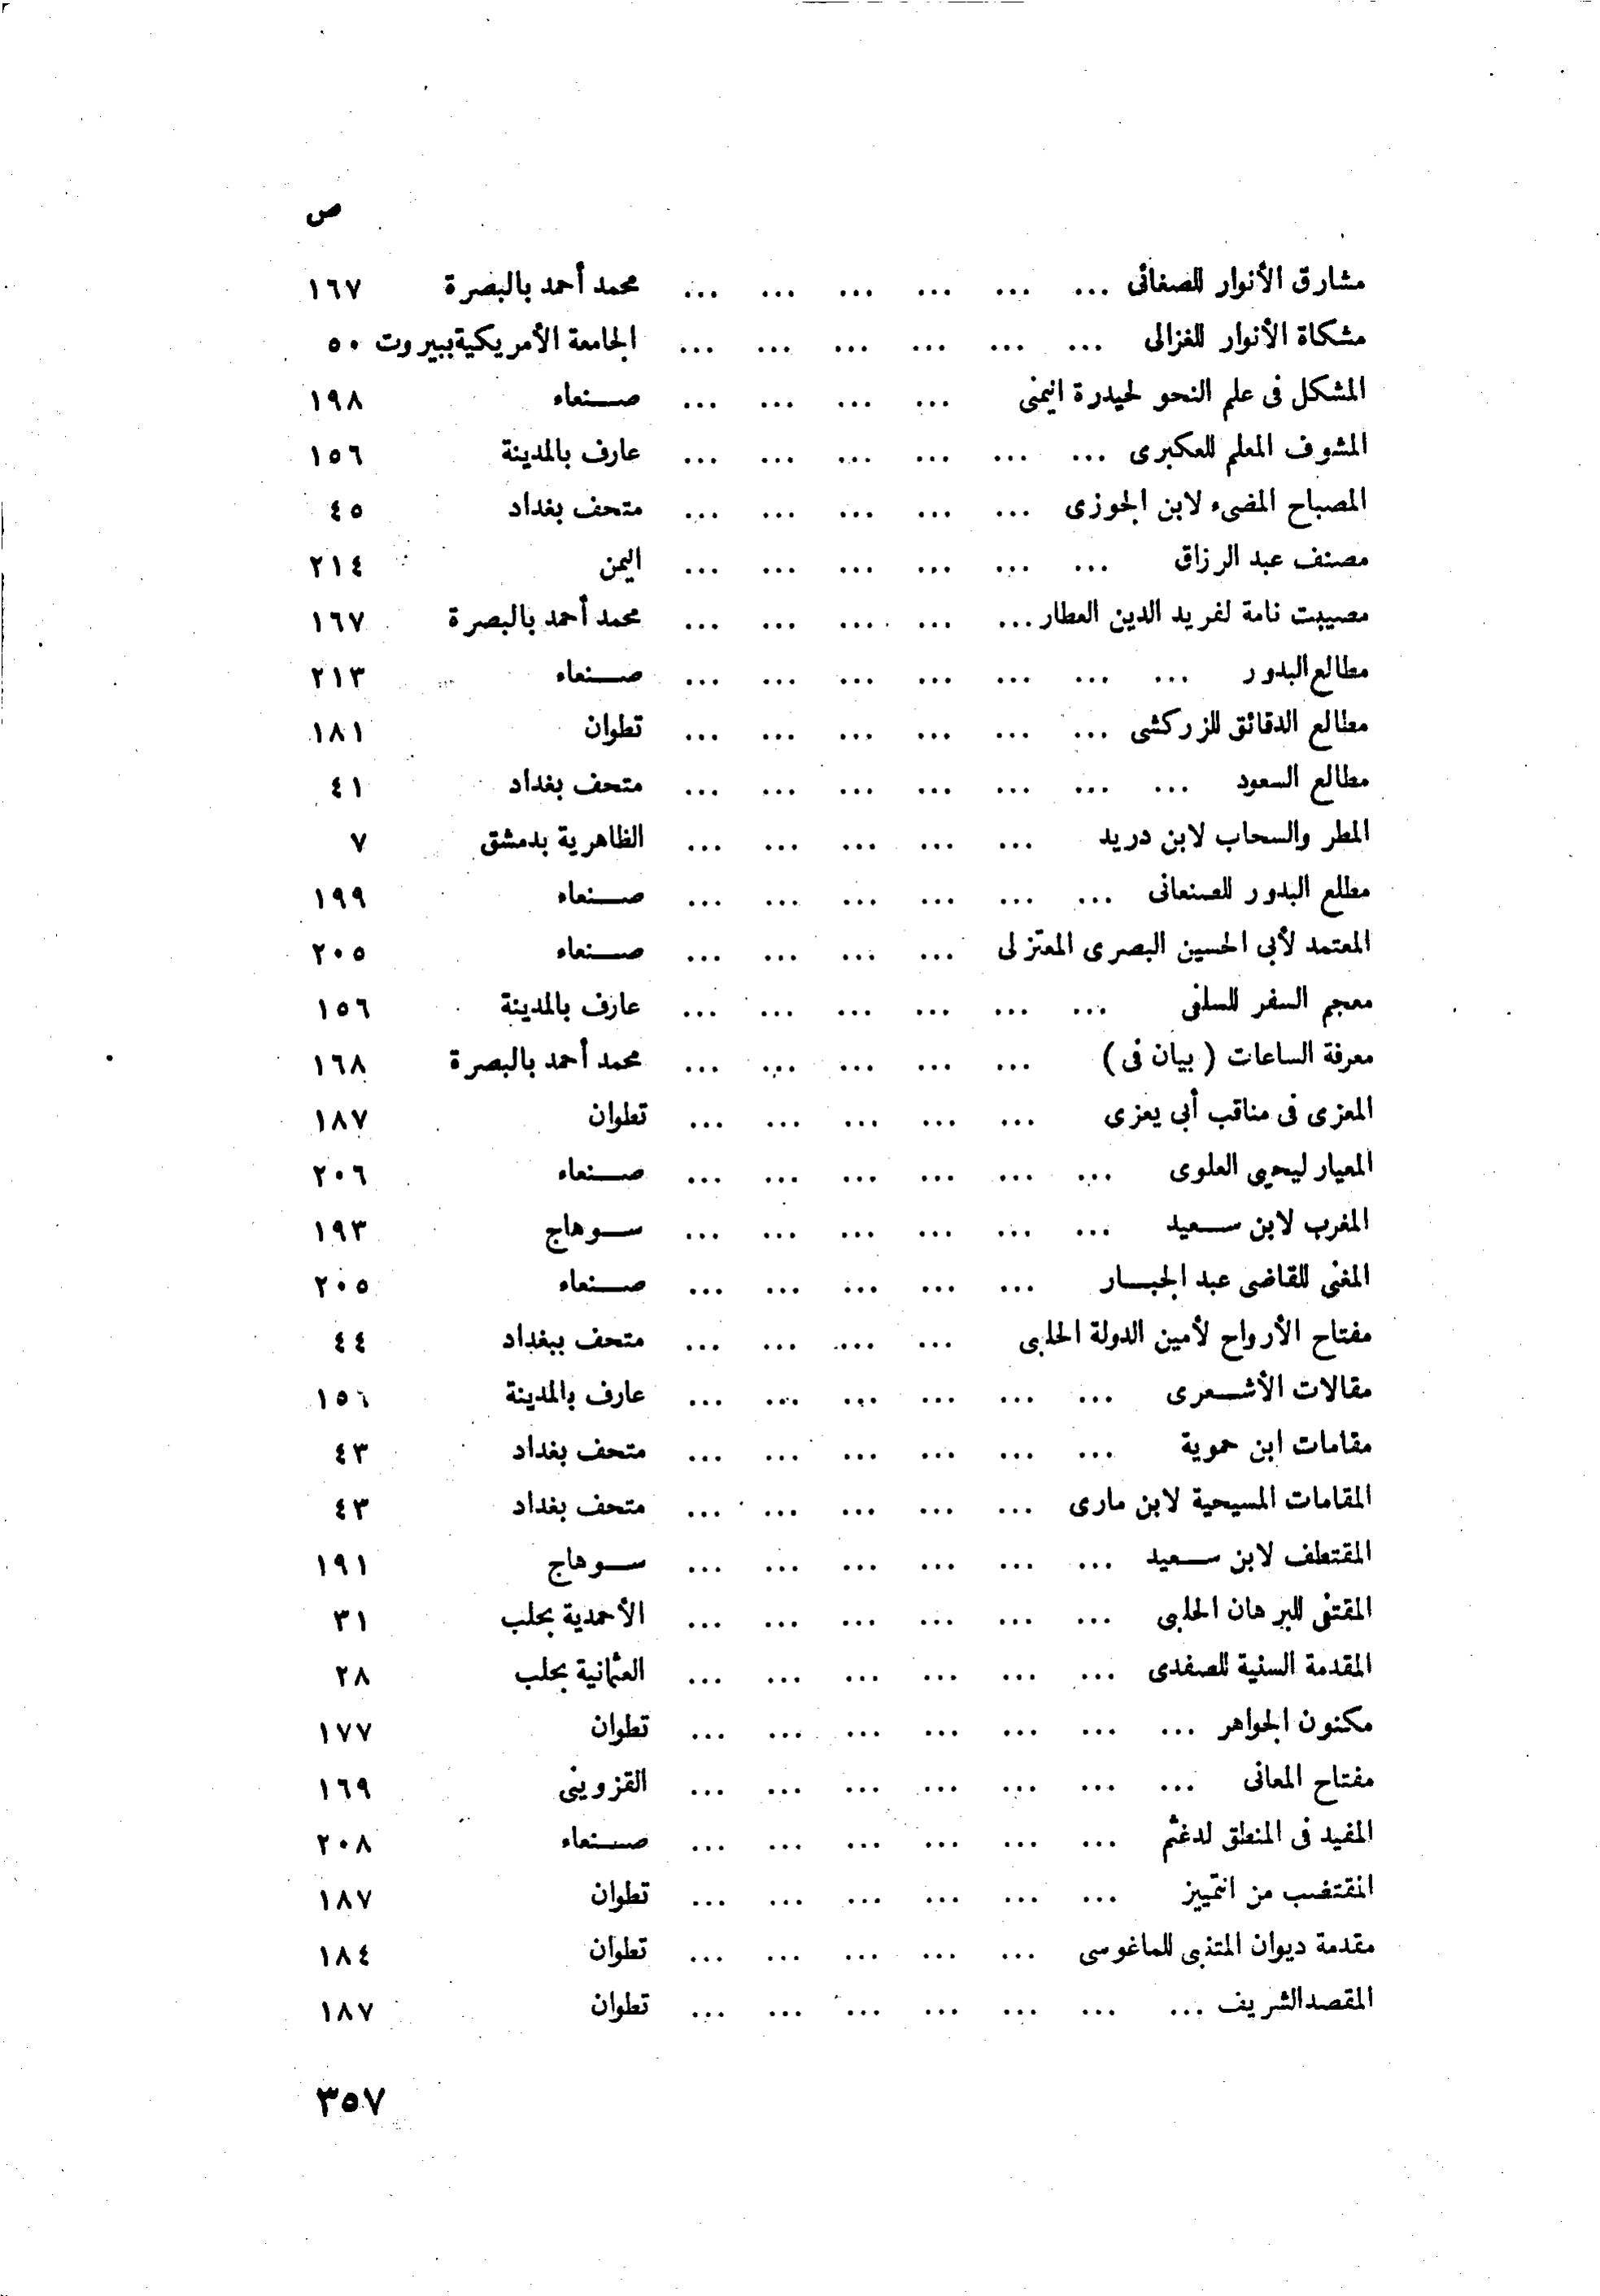 ص
مشارق الأنوار للصغانى ... ... ... ... ... ... محمد أحمد بالبصرة ١٦٧
مشكاة الأنوار للغزالى ... ... ... ... ... ... الجامعة الأمريكية ببيروت ٥٠
المشكل فى علم النحو لحيدرة اليمنى ... ... ... ... صنعاء ١٩٨
المشوف المعلم للعكبرى ... ... ... ... ... ... عارف بالمدينة ١٥٦
المصباح المضىء لابن الجوزى ... ... ... ... ... متحف بغداد ٤٥
مصنف عبد الرزاق ... ... ... ... ... ... اليمن ٢١٤
مصيبت نامة لفريد الدين العطار ... ... ... ... ... محمد أحمد بالبصرة ١٦٧
مطالع البدور ... ... ... ... ... ... ... صنعاء ٢١٣
مطالع الدقائق للزركشى ... ... ... ... ... ... تطوان ١٨١
مطالع السعود ... ... ... ... ... ... ... متحف بغداد ٤١
المطر والسحاب لابن دريد ... ... ... ... ... الظاهرية بدمشق ٧
مطلع البدور للصنعانى ... ... ... ... ... ... صنعاء ١٩٩
المعتمد لأبى الحسين البصرى المعتزلى ... ... ... ... صنعاء ٢٠٥
معجم السفر للسلفى ... ... ... ... ... ... عارف بالمدينة ١٥٦
معرفة الساعات ( بيان فى ) ... ... ... ... ... محمد أحمد بالبصرة ١٦٨
المعزى فى مناقب أبى يعزى ... ... ... ... ... تطوان ١٨٧
المعيار ليحيى العلوى ... ... ... ... ... ... صنعاء ٢٠٦
المغرب لابن سعيد ... ... ... ... ... ... سوهاج ١٩٣
المغنى للقاضى عبد الجبار ... ... ... ... ... صنعاء ٢٠٥
مفتاح الأرواح لأمين الدولة الحلبى ... ... ... ... متحف ببغداد ٤٤
مقالات الأشعرى ... ... ... ... ... ... عارف بالمدينة ١٥٦
مقامات ابن حموية ... ... ... ... ... ... متحف بغداد ٤٣
المقامات المسيحية لابن مارى ... ... ... ... ... متحف بغداد ٤٣
المقتطف لابن سعيد ... ... ... ... ... ... سوهاج ١٩١
المقتنى للبرهان الحلبى ... ... ... ... ... ... الأحمدية بحلب ٣١
المقدمة السنية للصفدى ... ... ... ... ... ... العثمانية بحلب ٢٨
مكنون الجواهر ... ... ... ... ... ... ... تطوان ١٧٧
مفتاح المعانى ... ... ... ... ... ... ... القزوينى ١٦٩
المفيد فى المنطق لدغثم ... ... ... ... ... ... صنعاء ٢٠٨
المقتضب من التمييز ... ... ... ... ... ... تطوان ١٨٧
مقدمة ديوان المتنبى للماغوسى ... ... ... ... ... تطوان ١٨٤
المقصد الشريف ... ... ... ... ... ... ... تطوان ١٨٧
٣٥٧